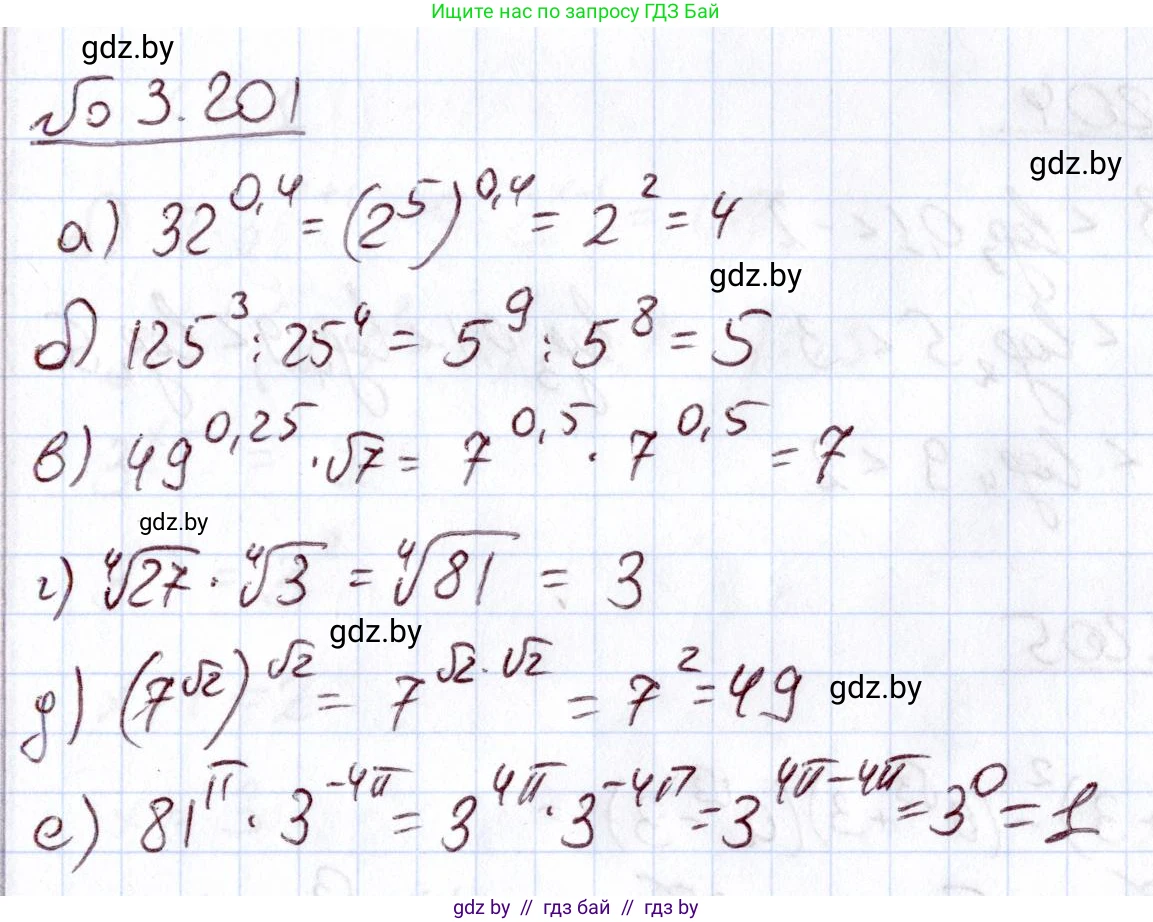 Ищите нас по запросу ГДЗ Бай
gdz.by
№ 3.201
gdz.by
а) 32^0,4 = (2^5)^0,4 = 2^2 = 4
gdz.by
б) 125^3 : 25^4 = 5^9 : 5^8 = 5
в) 49^0,25 · √7 = 7^0,5 · 7^0,5 = 7
gdz.by
г) ⁴√27 · ⁴√3 = ⁴√81 = 3
gdz.by
д) (7^√2)^√2 = 7^√2·√2 = 7^2 = 49
gdz.by
е) 81^π · 3^-4π = 3^4π · 3^-4π = 3^4π-4π = 3^0 = 1
gdz.by // гдз бай // gdz by